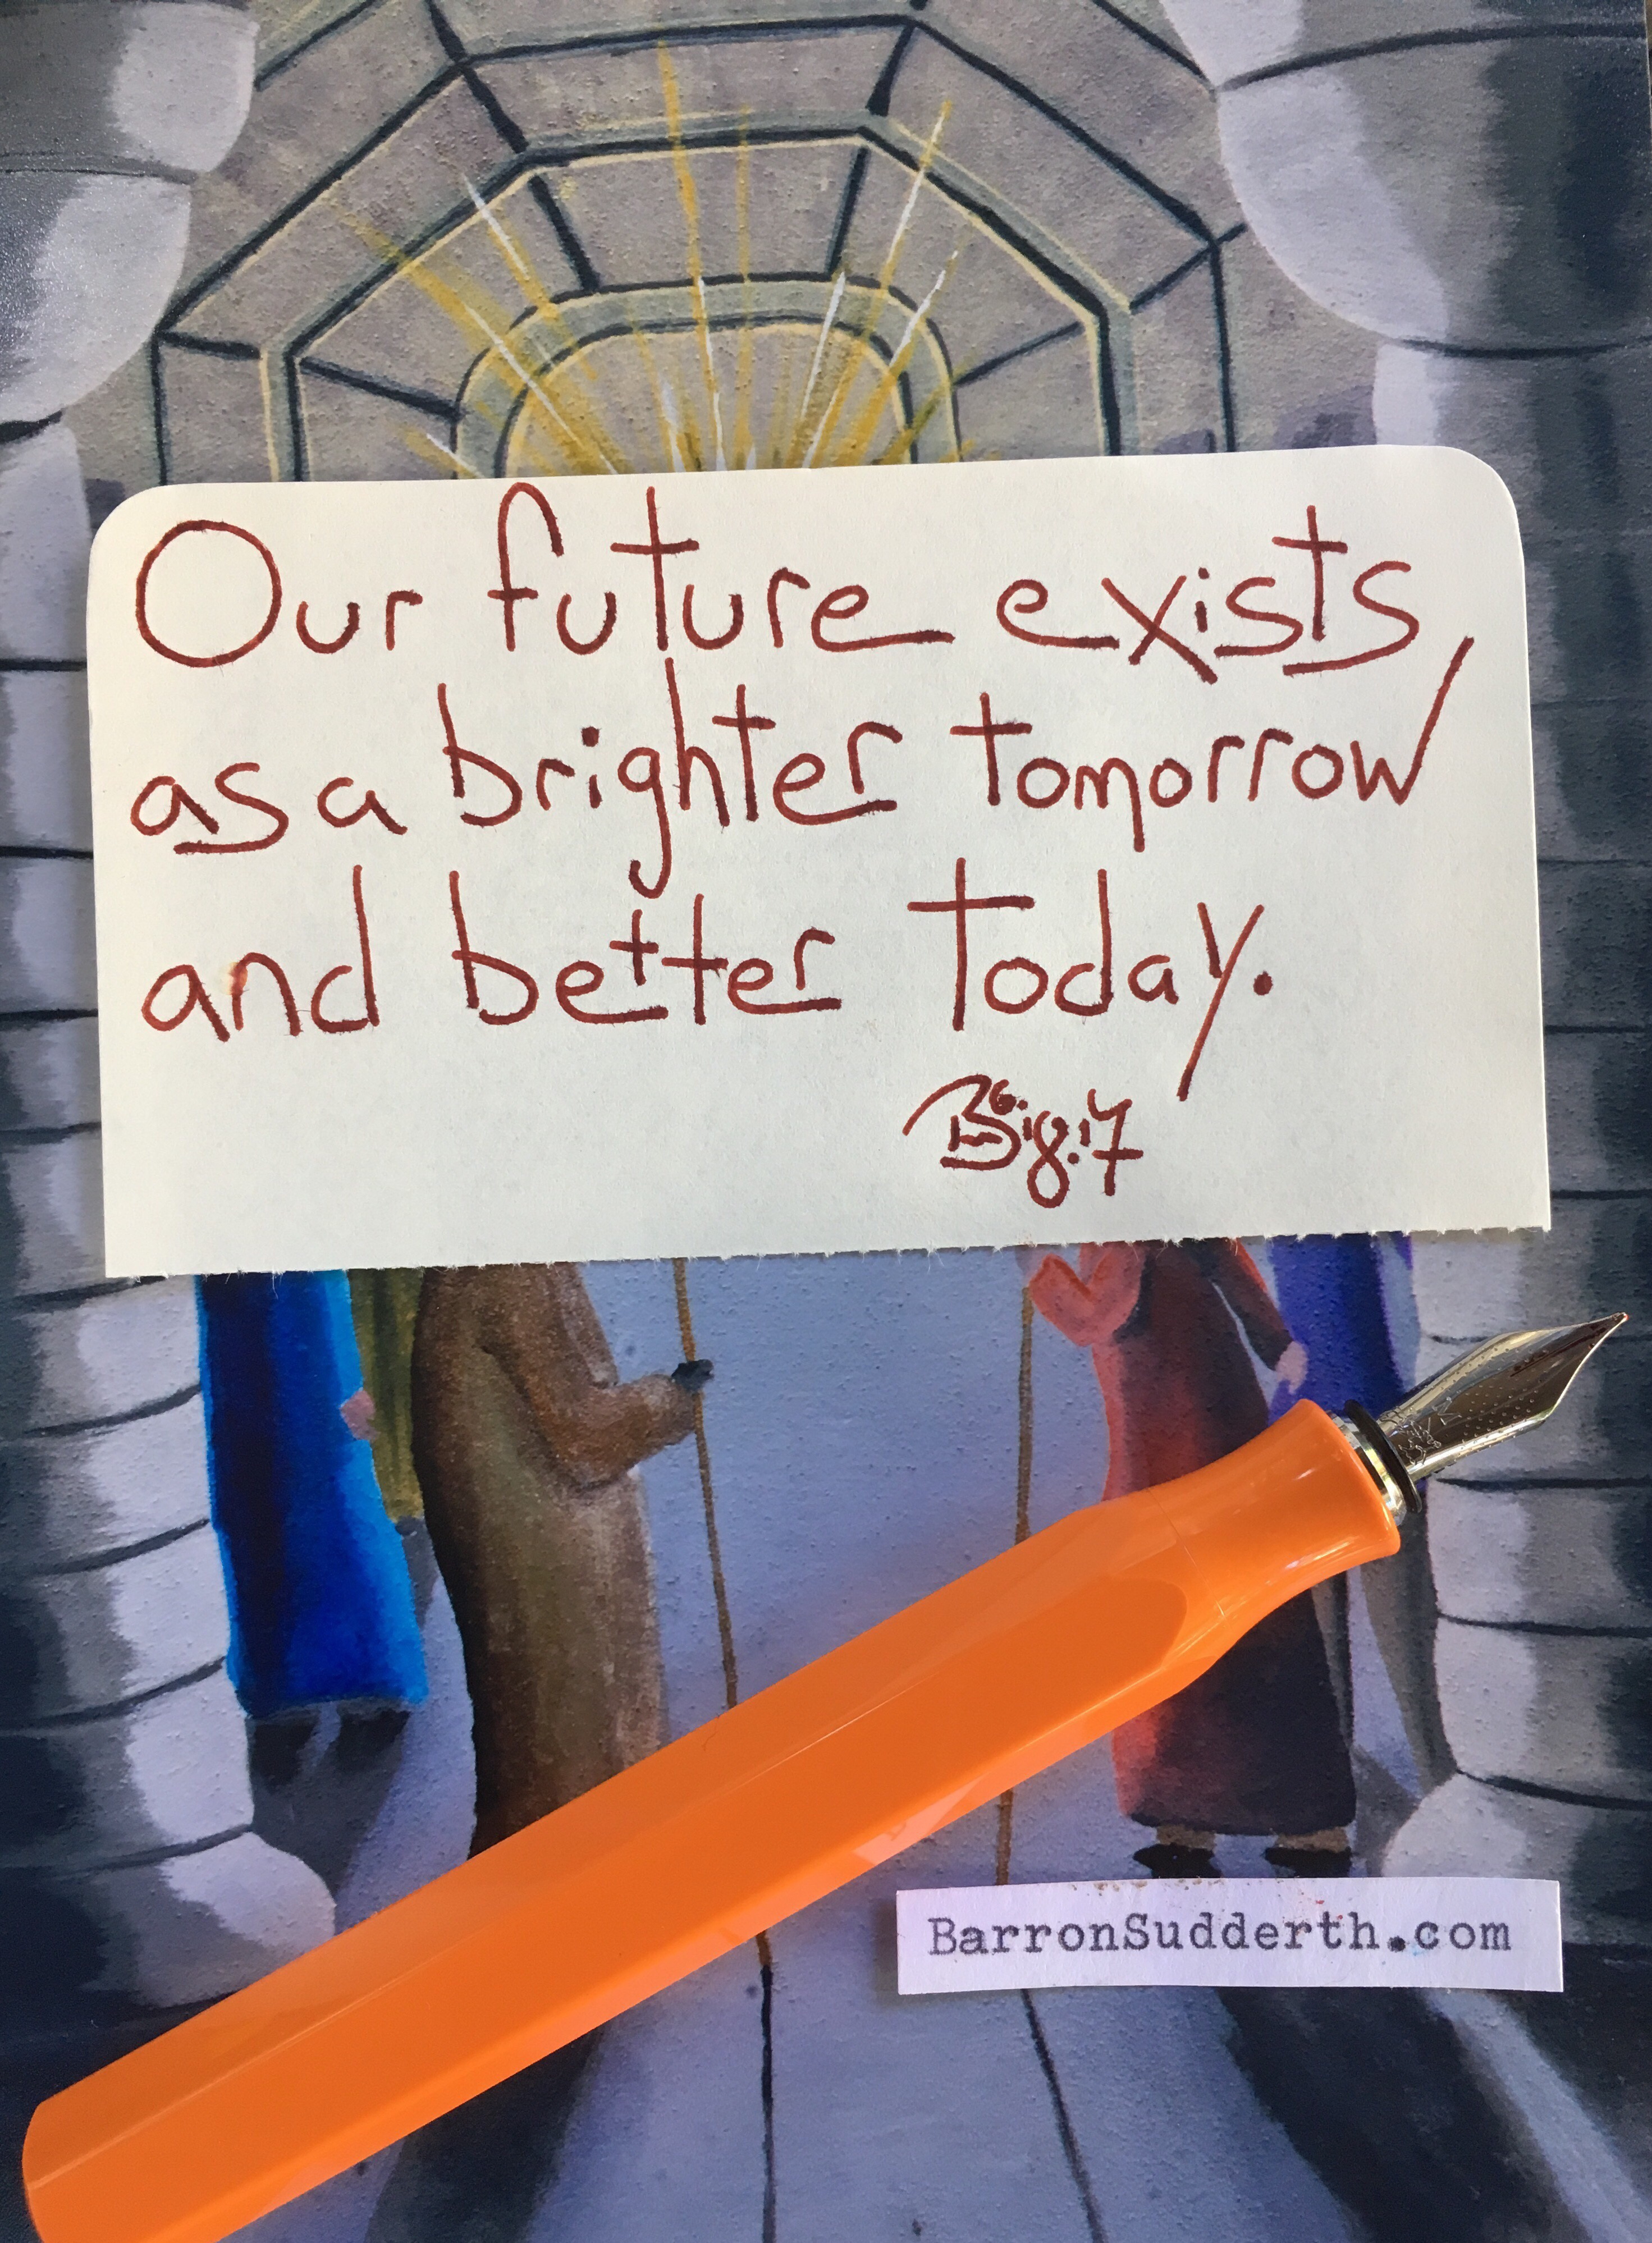 Our future exists
as a brighter tomorrow
and better today.
BarronSudderth.com